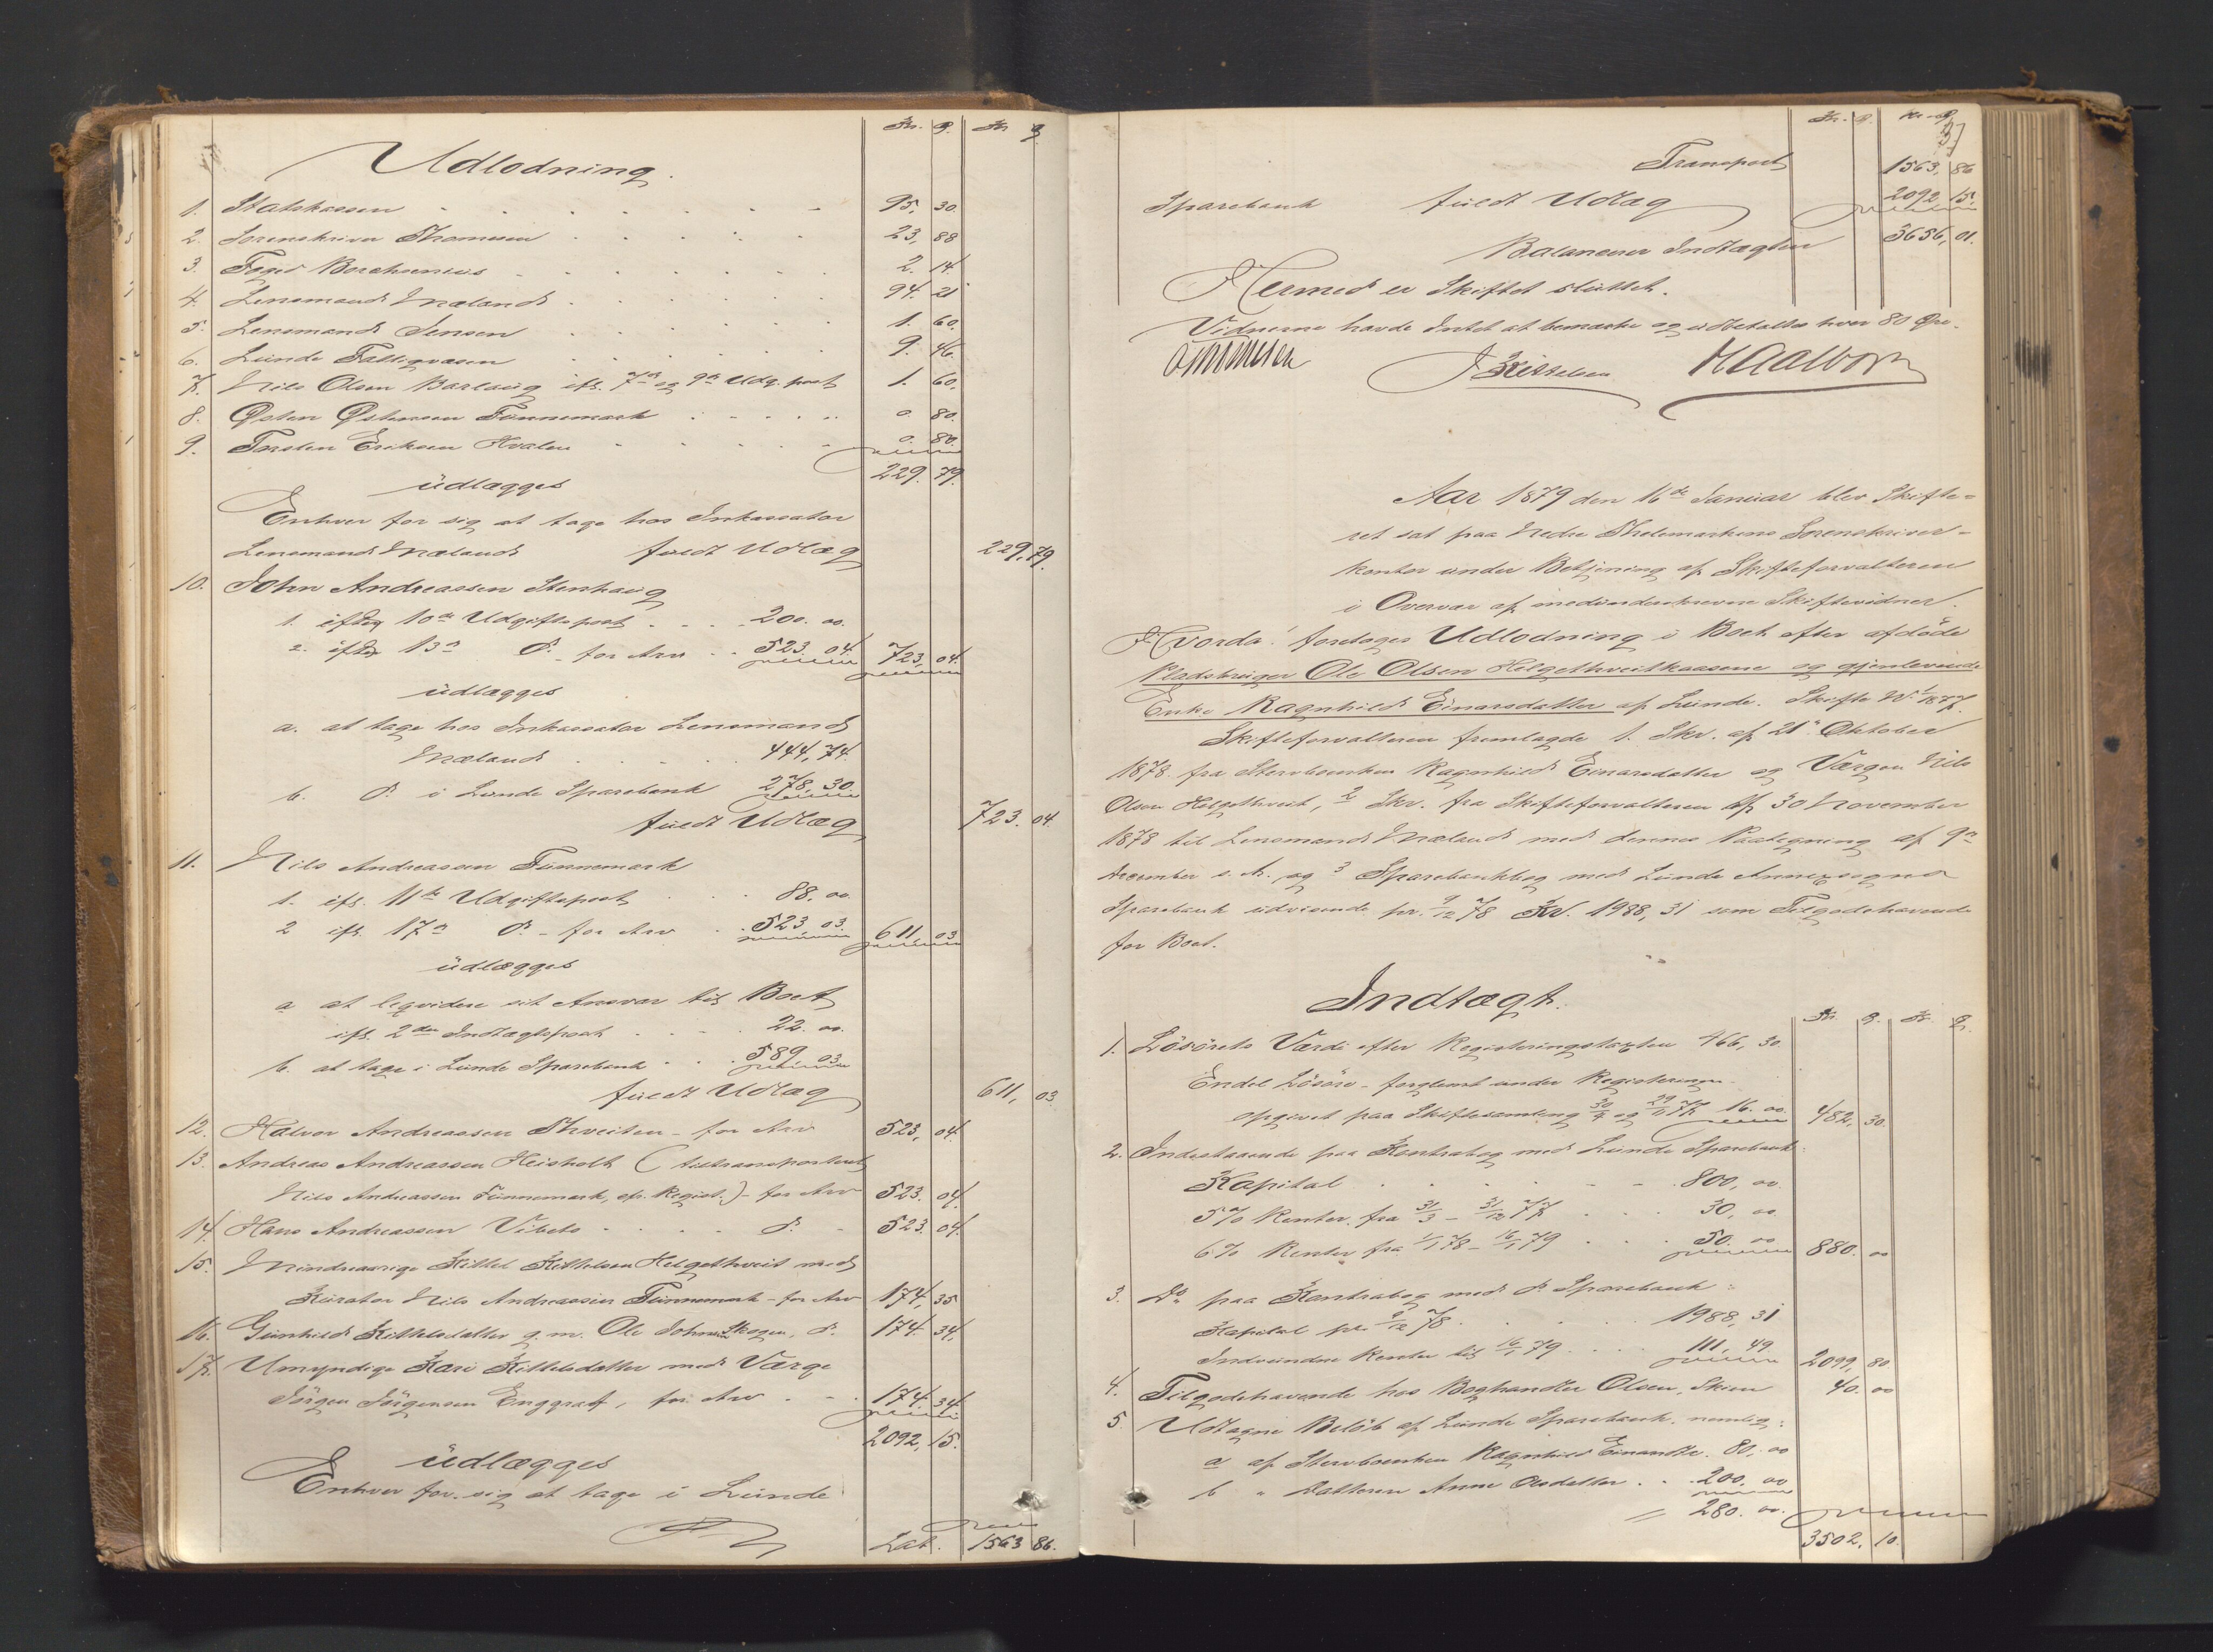 Kr. Ø. Kr Ø
Udlodning.
1. Statskassen 95, 30.
2. Sorenskriver Thomesen 23, 88
3. Foged Borchsenius 2. 14
4. Lensmand Mæland 94. 21
5. Lensmand Jensen 1. 60.
6. Lunde Fattigvæsen 9. 46.
7. Nils Olsen Barlaug ifl. 7de og 9de Udg. post 1. 60.
8. Østen Østensen Funnemark 0. 80.
9. Torsten Eriksen Hvalen 0. 80.
229. 79.
udlægges
Enhver for sig at tage hos Inkassator
Lensmand Mæland fuldt Udlæg 229, 79.
10. John Andreassen Stenhaug
1. iflg 10de Udgiftspost 200. 00.
2. iflg 13de Do. for Arv 523. 04. 723, 04.
udlægges
a. at tage hos Inkassator Lensmand
Mæland 444, 74.
b. Do. i Lunde Sparebank 278, 30.
fuldt Udlæg 723. 04.
11. Nils Andreassen Funnemark
1. ifl. 11te Udgiftspost 88, 00
2 ifl. 17de Do. - for Arv 523, 03. 611, 03
udlægges
a at liqvidere sit Ansvar til Boet
ifl. 2den Indtægtspost 22. 00.
b. at tage i Lunde Sparebank 589, 03
fuldt Udlæg 611, 03
12. Halvor Andreassen Thveiten - for Arv 523, 04.
13. Andreas Andreassen Heisholt ( tiltransporteret
Nils Andreassen Funnemark, efr. Regist.) - for Arv 523. 04.
14. Hans Andreassen Vibeto Do. 523. 04.
15. Mindreaarige Kittel Kittelsen Helgethveit med
Kurator Nils Andreassen Funnemark - for Arv 174, 35
16. Gunhild Kittelsdatter g. m. Ole Johnsen Skogen, Do. 174. 34,
17. Umyndige Kari Kittelsdatter med Værge
Jörgen Jörgensen Enggrav, for Arv 174. 34.
2092, 15.
udlægges
Enhver for sig at tage i Lunde
Lat. 1563 86.
Kr. Ø. Kr. Ø
Transport 1563, 86
Sparebank fuldt Udlæg 2092 15.
Balancerer Indtægten 3656, 01.
Hermed er Skiftet sluttet.
Vidnerne havde Intet at bemærke og udbetaltes hver 80 Øre.
Thomesen J Kittelsen H Aalborg
Aar 1879 den 16de Januar blev Skifte=
ret sat paa Nedre Thelemarkens Sorenskriver-
kontor under Betjening af Skifteforvalteren
i Overvær af medunderskrevne Skiftevidner.
Hvorda! foretoges Udlodning i Boet efter afdöde
Pladsbruger Ole Olsen Helgethveitkaasene og gjenlevende
Enke Ragnhild Einarsdatter af Lunde. Skifte No 1/1877.
Skifteforvalteren fremlagde 1. Skr. af 21de Oktober
1878 fra Stervboenken Ragnhild Einarsdatter og Værgen Nils
Olsen Helgethveit, 2 Skr. fra Skifteforvalteren af 30 November
1878 til Lensmand Mæland med dennes Paategning af 9de
December s. A. og 3 Sparebankbog med Lunde Annexsogns
Sparebank udvisende pr. 9/12 78 Kr. 1988, 31 som Tilgodehavende
for Boet.
Indtægt.
Kr. Ø. Kr Ø.
1. Lösörets Værdi efter Registreringstaxten 466, 30
Endel Lösöre - forglemt under Registeringen -
opgivet paa Skiftesamling 30/4 og 29/11 77 16. 00 482, 30.
2. Indestaaende paa Kontrabog med Lunde Sparebank:
Kapital 800, 00
5% Renter, fra 31/3 - 31/12 77 30, 00
6% Renter fra 1/1 78 - 16/1 79 50. 00 880. 00
3. Do paa Kontrabog med Do. Sparebank:
Kapital pr. 9/12 78 1988, 31
Indvundne Renter til 16/1 79 111, 49 2099, 80
4. Tilgodehavende hos Boghandler Olsen, Skien 40. 00
5 Udtagne Belöb af Lunde Sparebank, nemlig:
a af Stervboenken Ragnhild Einarsdtr. 80. 00
b " Datteren Anne Olsdatter 200. 00
= 280. 00.
3502, 10.